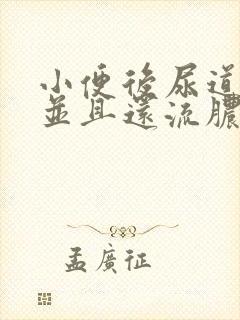 小便後尿道
並且還流膿
孟廣征